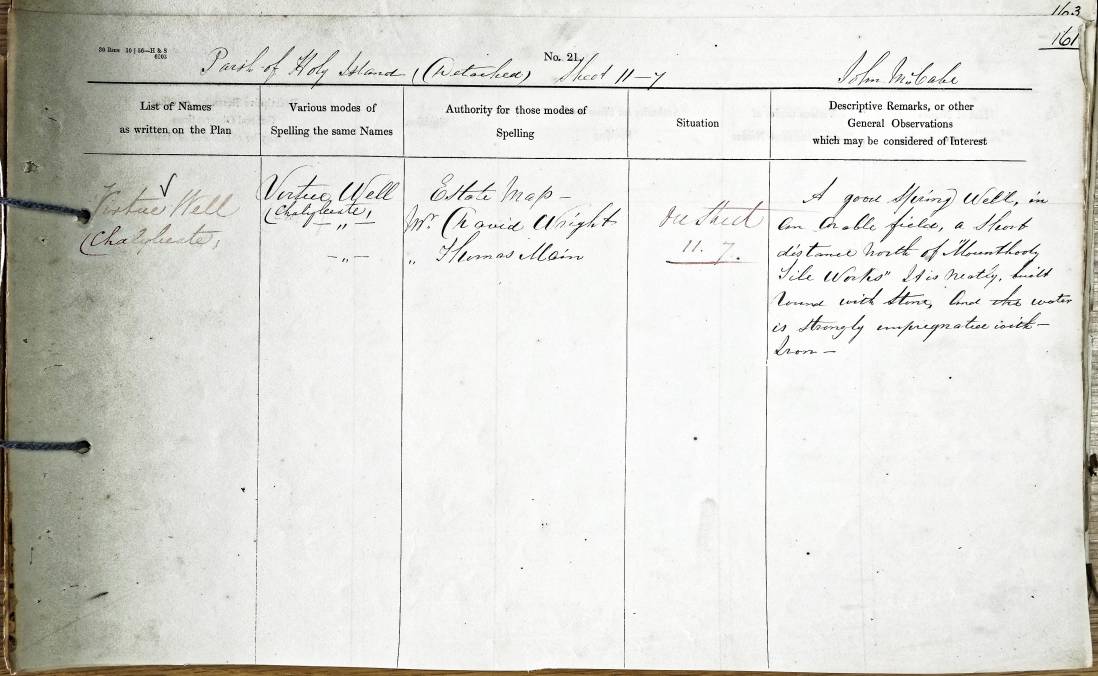 163
161
No. 21.
Parish of Holy Island, (Detached) Sheet 11-7
John McCabe
List of Names
as written on the Plan
Various modes of
Spelling the same Names
Authority for those modes of
Spelling
Situation
Descriptive Remarks, or other
General Observations
which may be considered of Interest
Virtue Well
(Chalybeate)
Virtue Well
(Chalybeate)
- „ -
- „ -
Estate Map -
Mr. David Wright
„ Thomas Main
On Sheet
11. 7.
A good Spring Well, in
an arable field, a Short
distance North of "Mounthooly
Tile Works" It is neatly, built
round with Stone, and the water
is strongly empregnated with -
Iron -